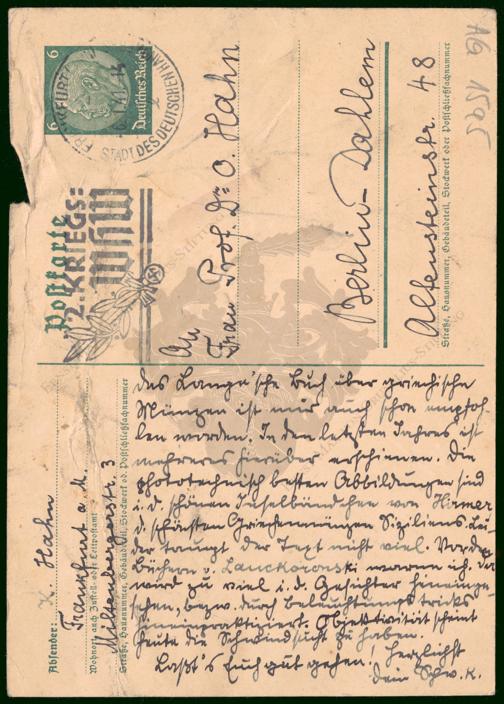 Postkarte
6 6
Deutsches Reich
FRANKFURT
STADT DES DEUTSCHEN HAN
2. KRIEGS=
WHW
An
Frau Prof. Dr. O. Hahn
Berlin-Dahlem
Altensteinstr. 48
Straße, Hausnummer, Gebäudeteil, Stockwerk oder Postschließfachnummer
AG 1595
Absender: K. Hahn
Frankfurt a. M.
Wohnort, auch Zustell- oder Leitpostamt
Miltenbergerstr. 3
Straße, Hausnummer, Gebäudeteil, Stockwerk od. Postschließfachnummer
Das Lange'sche Buch über griechische
Münzen ist mir auch schon empfoh-
len worden. In den letzten Jahren ist
mehreres hierüber erschienen. Die
phototechnisch besten Abbildungen sind
i. d. schönen Inselbändchen von Hirmer
i. d. schönsten Griechenmünzen Siziliens. Lei-
der taugt der Text nicht viel. Vor den
Büchern v. Lanckoronski warne ich. Da
wird zu viel i. d. Gesichter hineinge-
sehen, bezw. durch Beleuchtungstricks
hineinpraktiziert. Objektivität scheint
heute die Schwindsucht zu haben.
Laßt's Euch gut gehen! Herzlichst
Dein Schw. K.